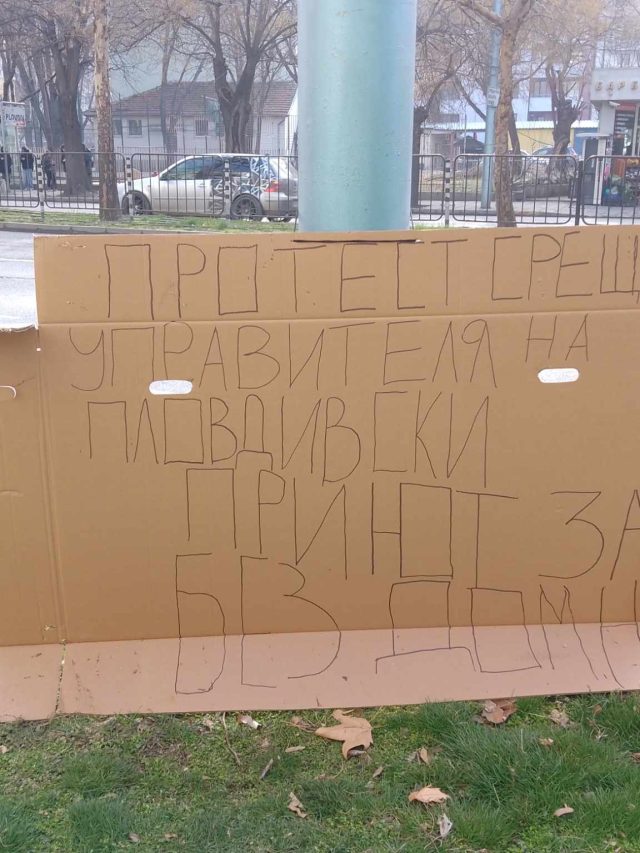 ПРОТЕСТ СРЕЩ
УПРАВИТЕЛЯ НА
ПЛОВДИВСКИ
ПРИЮТ ЗА
БЕЗДОМ